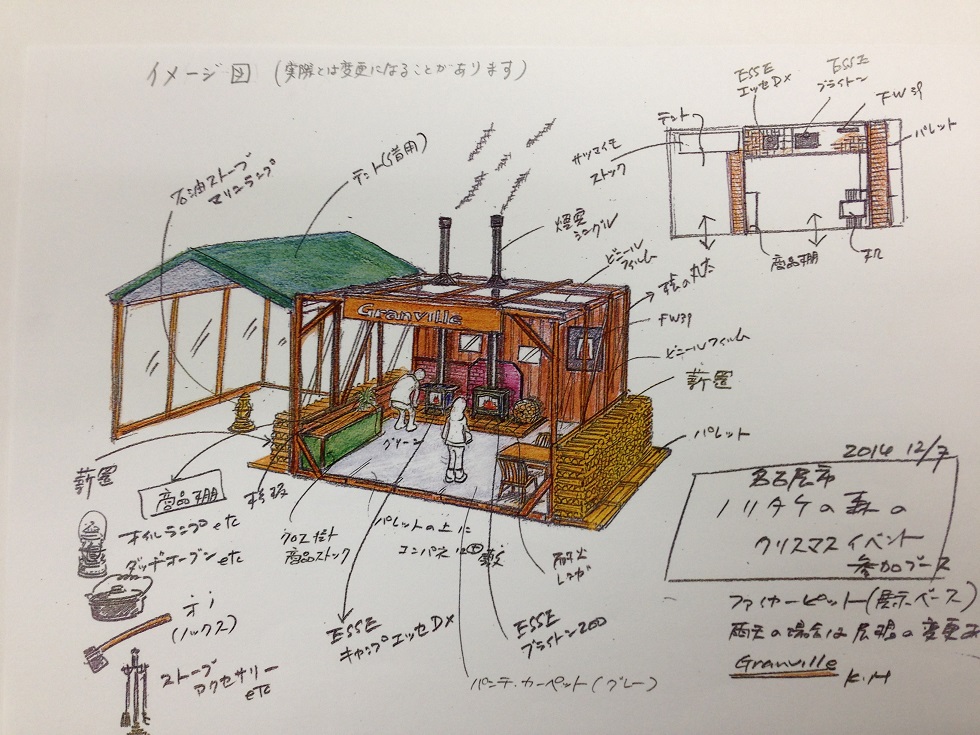 イメージ図 (実際とは変更になることがあります)
石油ストーブ
マリンランプ
テント(借用)
煙突
シングル
ビニール
フィルム
ESSE
エッセDX
ESSE
ブライトン
FW39
テント
サツマイモ
ストック
パレット
商品棚
机
FW39
ビニールフィルム
薪置
パレット
Granville
グリーン
薪置
商品棚
杉板
オイルランプ etc
ダッヂオーブン etc
オノ
(ノックス)
ストーブ
アクセサリー
etc
商品ストック
パレットの上に
ESSE
キャンプエッセDX
ESSE
ブライトン200
耐火
レンガ
パンチ.カーペット(グレー)
2014 12/7
名古屋市
ノリタケの森の
クリスマスイベント
参加ブース
ファイヤーピット(展示ベース)
雨天の場合は
の変更
Granville
K.H